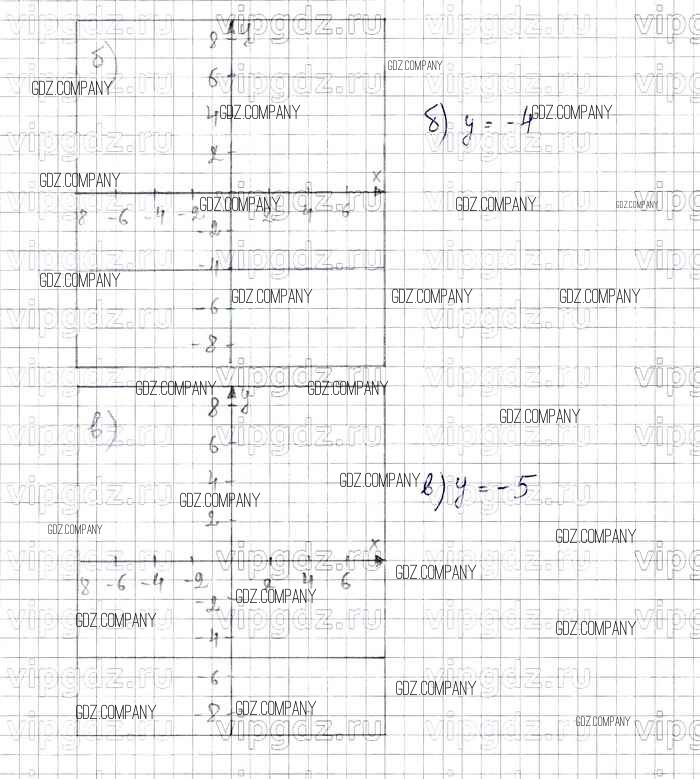 б)
y
8
6
4
2
x
-8 -6 -4 -2 2 4 6
-2
-4
-6
-8
б) y = -4
в)
y
8
6
4
2
x
8 -6 -4 -2 2 4 6
-2
-4
-6
-8
в) y = -5
GDZ.COMPANY
vipgdz.ru